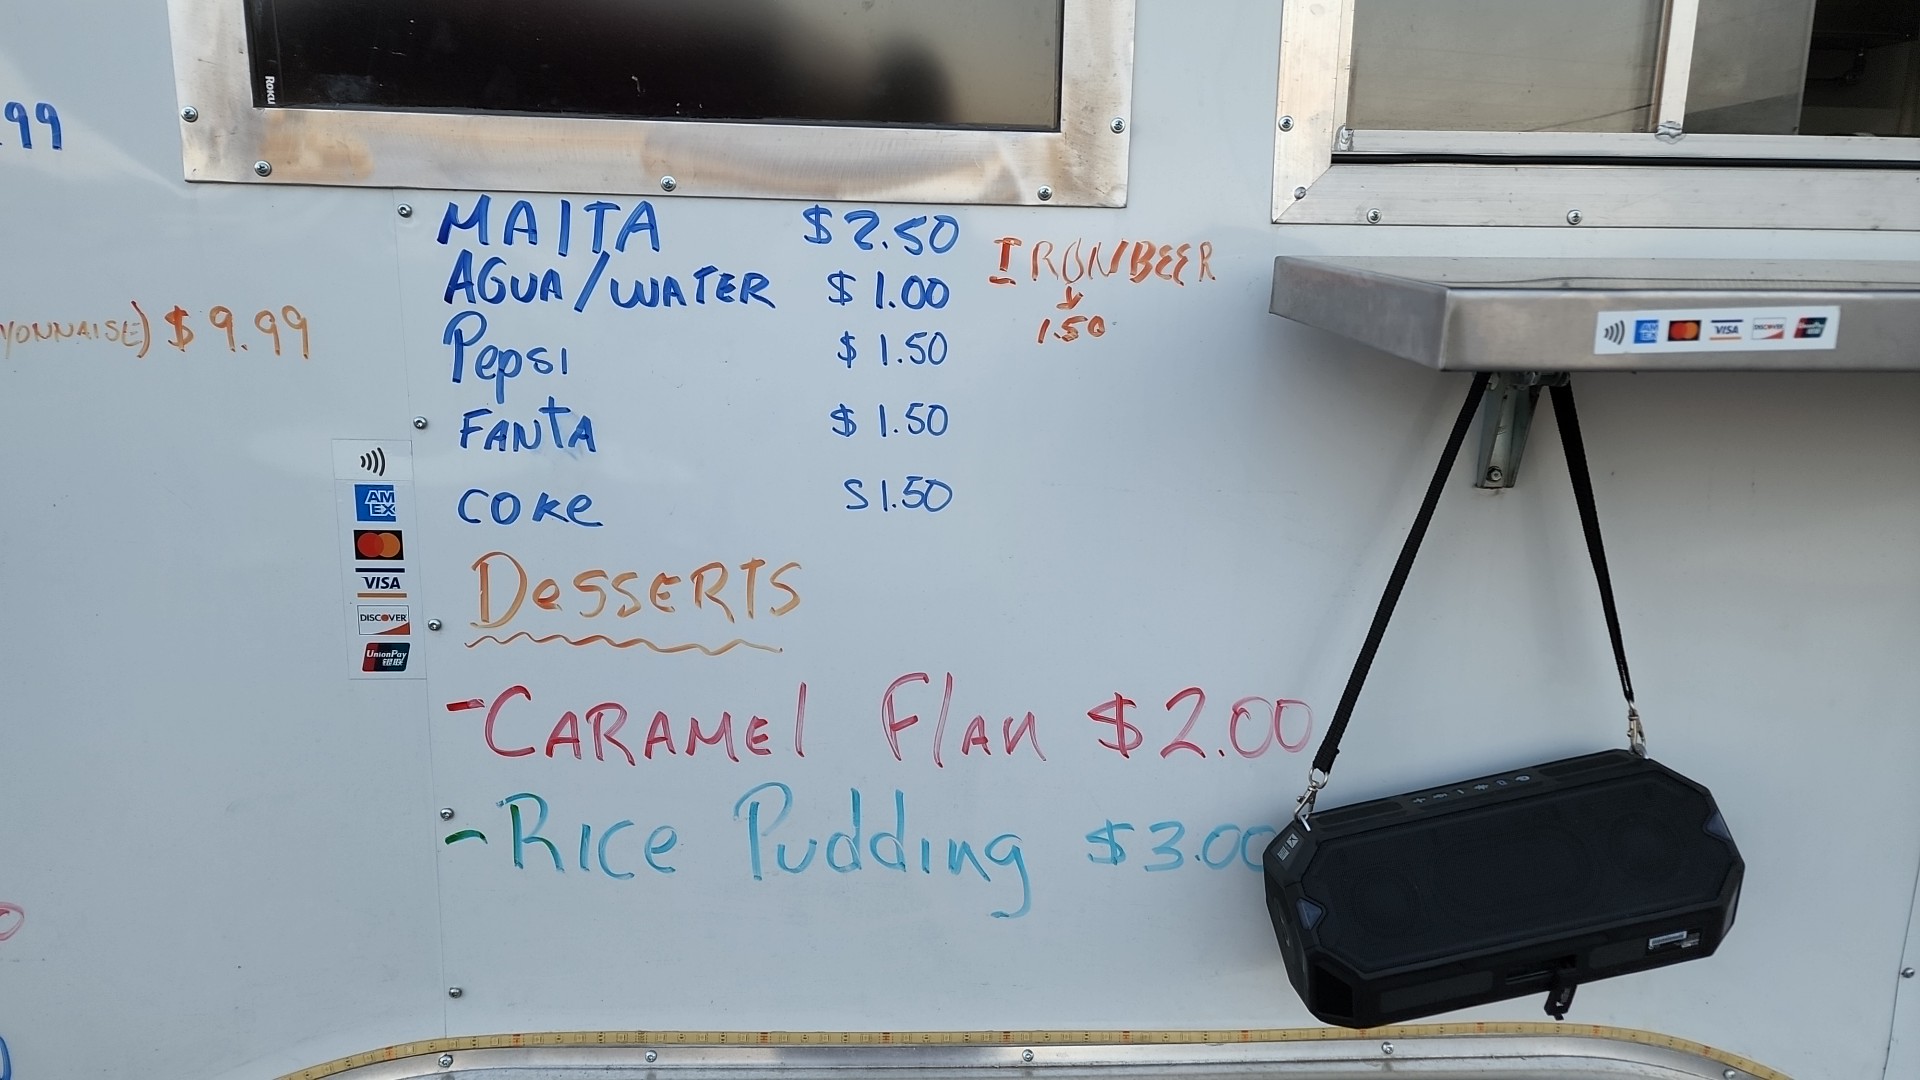 ROKU
.99
YONNAISE) $ 9.99
MAlTA $ 2.50
AGUA/WATER $ 1.00
Pepsi $ 1.50
FANTA $ 1.50
COKE $1.50
IRONBEER
1.50
AM
EX
VISA
DISCOVER
UnionPay
银联
DesserTS
- CARAMEl Flan $2.00
- Rice Pudding $3.00
AM
EX
VISA
DISCOVER